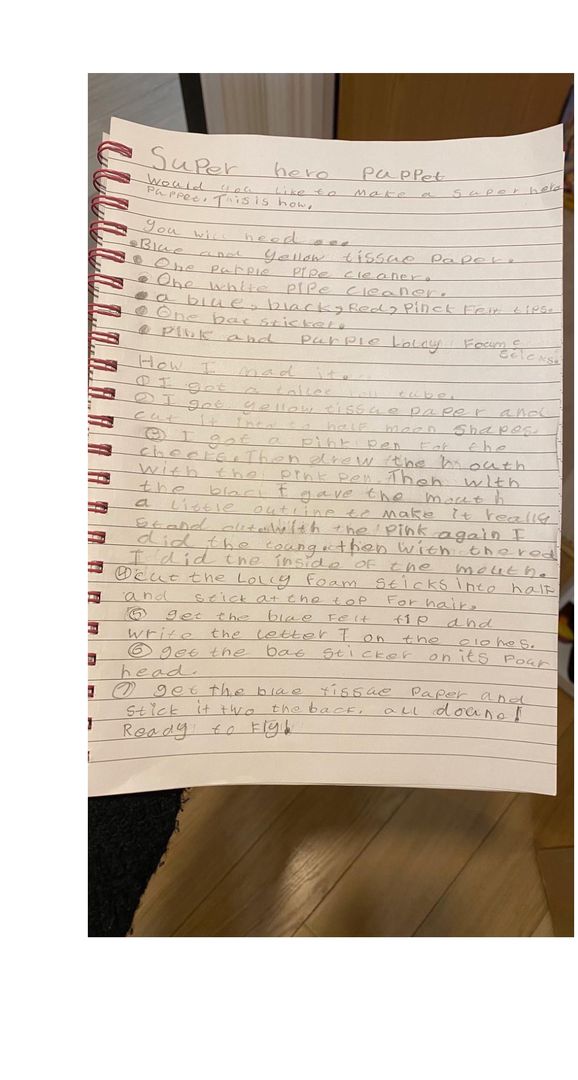 Super hero puppet
Would you like to make a super hero
puppet. This is how.
You will need ...
• Blue and yellow tissue paper.
• One purple pipe cleaner.
• One white pipe cleaner.
• a blue, black, Red, pinck Felt tips.
• One bat sticker.
• pink and purple Lolly Foam
sticks.
How I mad it.
① I got a toilet roll tube.
② I got yellow tissue paper and
cut it into to half moon shapes.
③ I got a pink pen for the
cheeks. Then drew the mouth
with the pink pen. Then with
the black I gave the mouth
a little outline to make it really
stand out. With the pink again I
did the toung. then with the red
I did the inside of the mouth.
④ cut the Lolly foam sticks into half
and stick at the top for hair.
⑤ get the blue felt tip and
write the letter T on the clohes.
⑥ get the bat sticker on its Four
head.
⑦ get the blue tissue paper and
stick it two the back. all doune!
Ready to Fly!